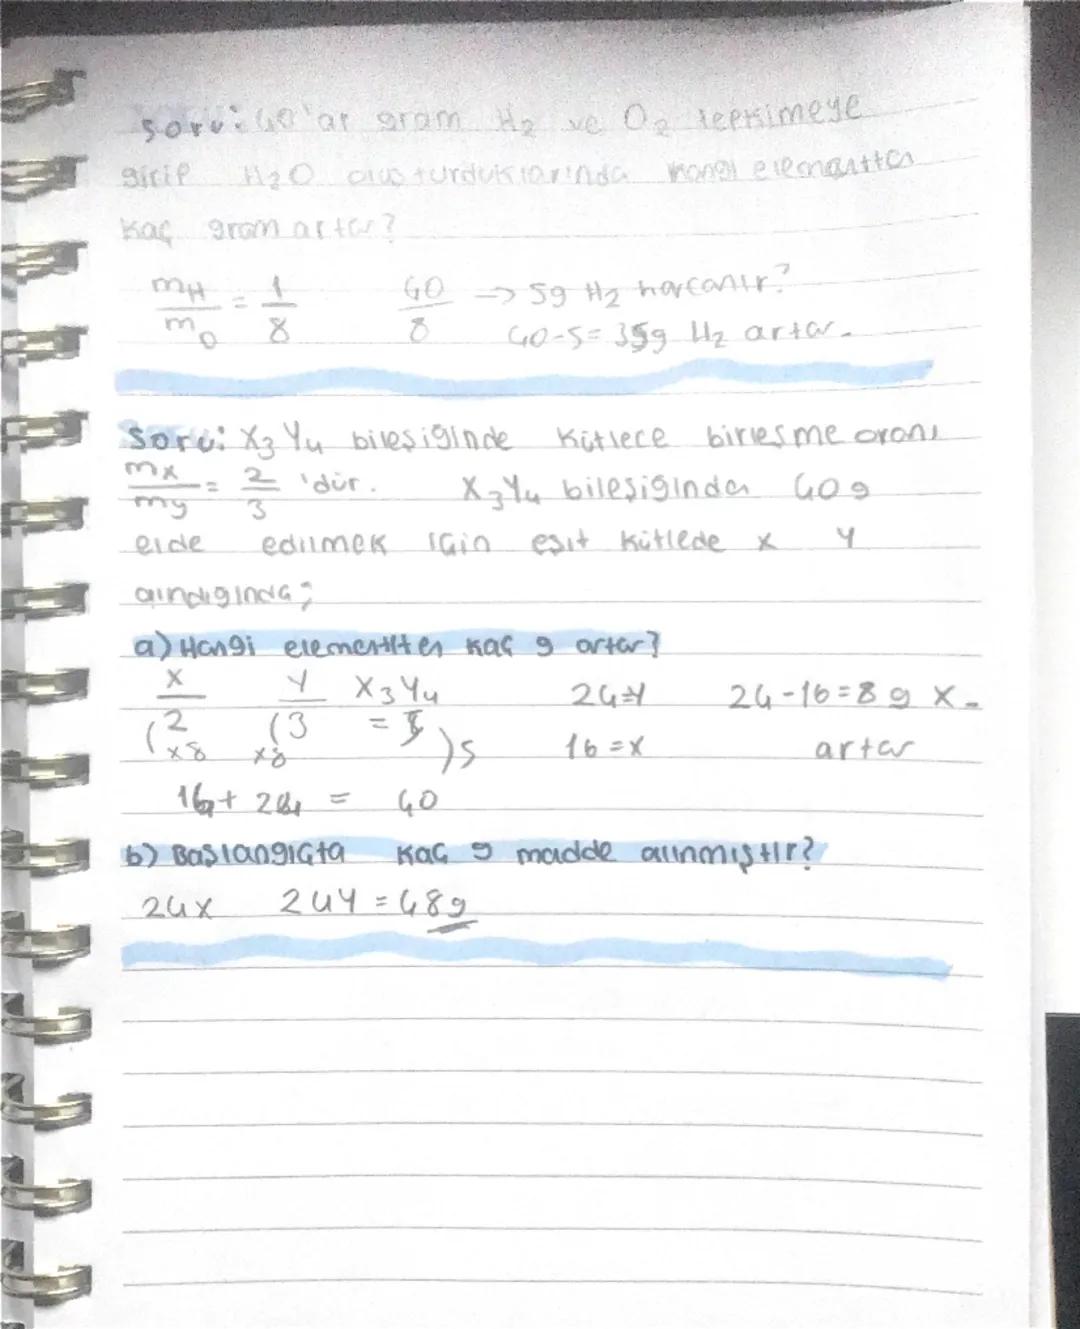 Soru: 40'ar gram H₂ ve O₂ tepkimeye
girip H₂O oluşturduklarında hangi elementten
kaç gram artar?
mH/mO = 1/8   40/8 → 5g H₂ harcanır?
40-5= 35g H₂ artar.
Soru: X₃Y₄ bileşiğinde kütlece birleşme oranı
mx/my = 2/3 'dür. X₃Y₄ bileşiğinden 40 g
elde edilmek için eşit kütlede x y
alındığında;
a) Hangi elementten kaç g artar?
X Y X₃Y₄ 24=Y 24-16=8 g X
(2 (3 = 5 )5 16=X artar
x8 x8
16+ 24 = 40
b) Başlangıçta kaç g madde alınmıştır?
24x 24Y = 48g